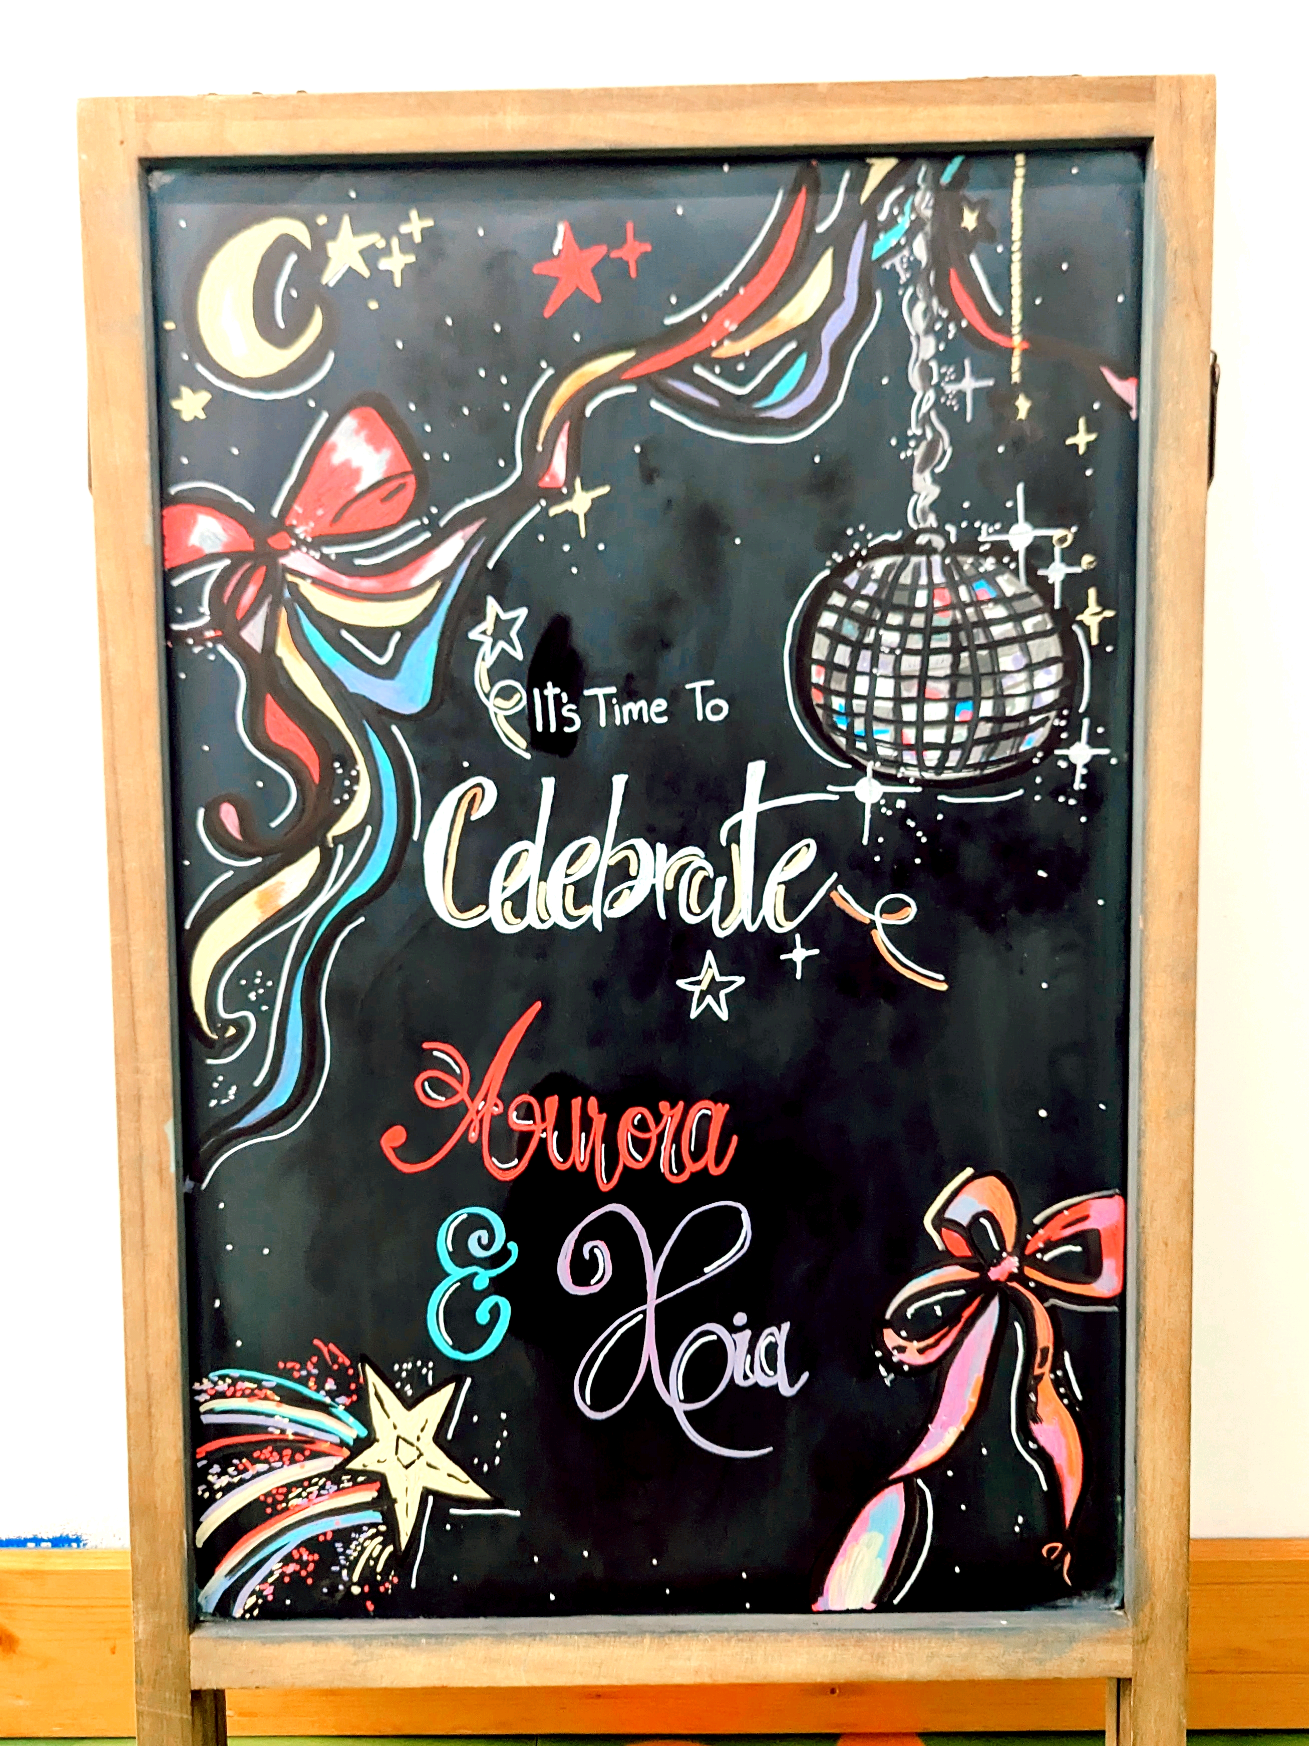 It's Time To
Celebrate
Aurora
& Xoia